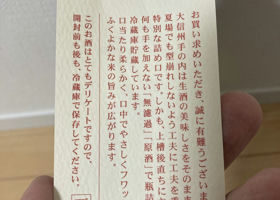 お買い求めいただき、誠に有難うございま
大信州手の内は生酒の美味しさをそのまま
夏場でも型崩れしないよう工夫に工夫を
特別な詰め口です。しかも、上槽後直ちに
何も手を加えない「無濾過」「原酒」で瓶詰
冷蔵庫貯蔵しています。
口当たり柔らかく、口中でやさしくフワッ
ふくよかな米の旨みが広がります。
このお酒はとてもデリケートですので、
開封前も後も、冷蔵庫で保存してください。